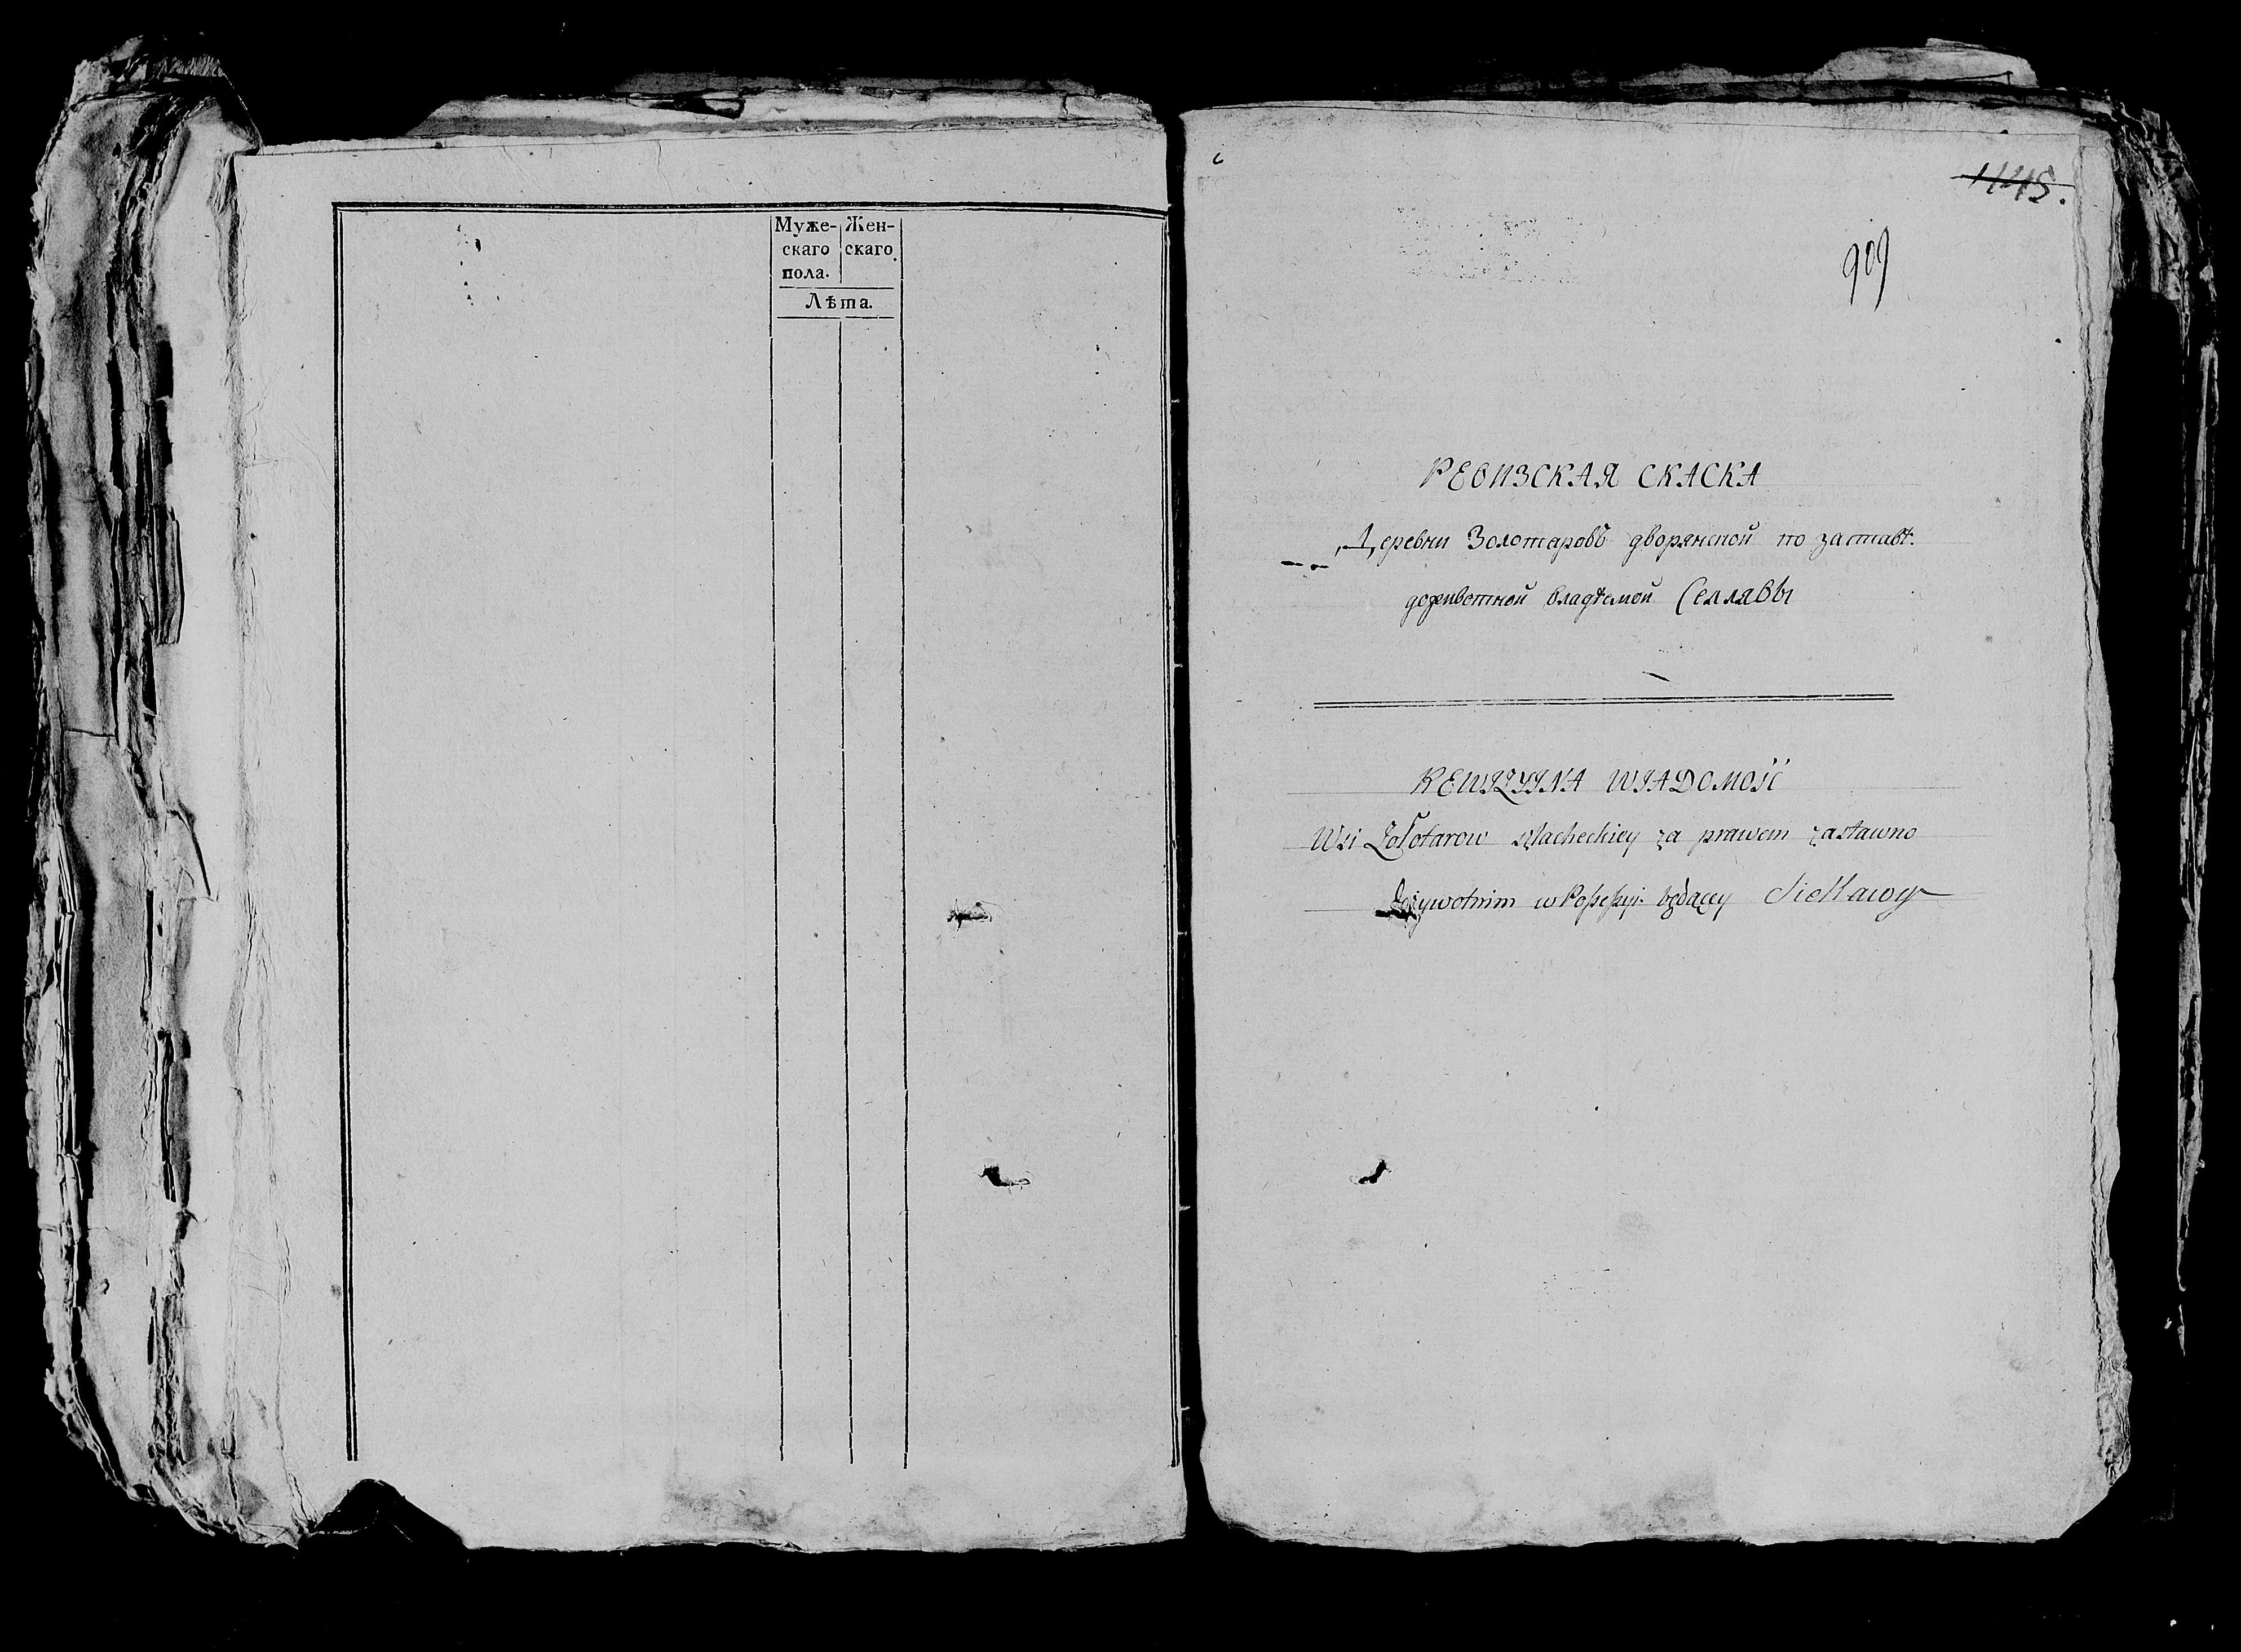 Муже- Жен-
скаго скаго
пола.
Лѣта.
1145.
909
РЕВИЗСКАЯ СКАСКА
Деревни Золотаровъ дворянской по заставѣ.
доживотной владѣемой Селлявы
REWIZYINA WIADOMOŚĆ
Wsi Zołotarow szlacheckiey za prawem zastawno
dożywotnim w Possessyi będącey Siellawy